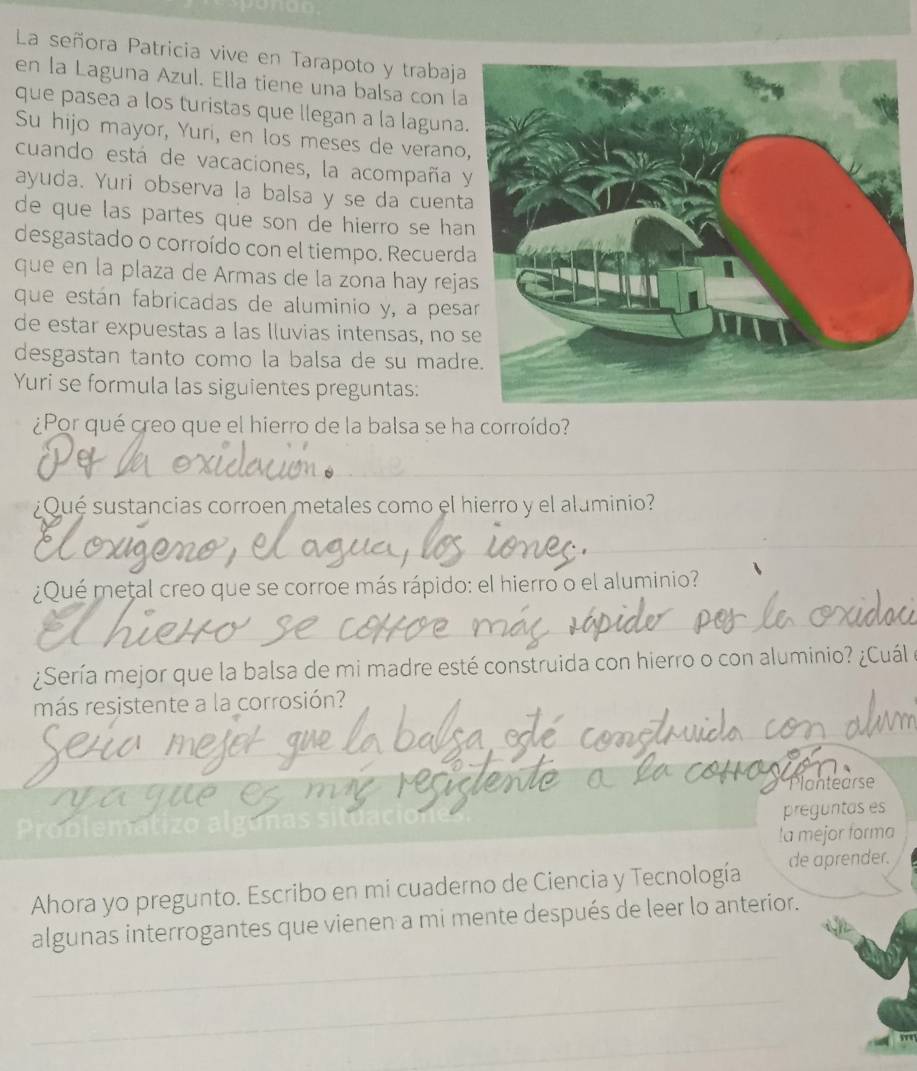 La señora Patricia vive en Tarapoto y trabaja
en la Laguna Azul. Ella tiene una balsa con la
que pasea a los turistas que llegan a la laguna.
Su hijo mayor, Yuri, en los meses de verano,
cuando está de vacaciones, la acompaña y
ayuda. Yuri observa la balsa y se da cuenta
de que las partes que son de hierro se han
desgastado o corroído con el tiempo. Recuerda
que en la plaza de Armas de la zona hay rejas
que están fabricadas de aluminio y, a pesar
de estar expuestas a las lluvias intensas, no se
desgastan tanto como la balsa de su madre.
Yuri se formula las siguientes preguntas:
¿Por qué creo que el hierro de la balsa se ha corroído?
Por la oxidación.
¿Qué sustancias corroen metales como el hierro y el aluminio?
El oxígeno, el agua, los iones.
¿Qué metal creo que se corroe más rápido: el hierro o el aluminio?
El hierro se corroe más rápido por la oxidaci
¿Sería mejor que la balsa de mi madre esté construida con hierro o con aluminio? ¿Cuál
más resistente a la corrosión?
Sería mejor que la balsa esté construida con alum
ya que es más resistente a la corrosión.
Problematizo algunas situaciones.
Plantearse
preguntas es
la mejor forma
de aprender.
Ahora yo pregunto. Escribo en mi cuaderno de Ciencia y Tecnología
algunas interrogantes que vienen a mi mente después de leer lo anterior.